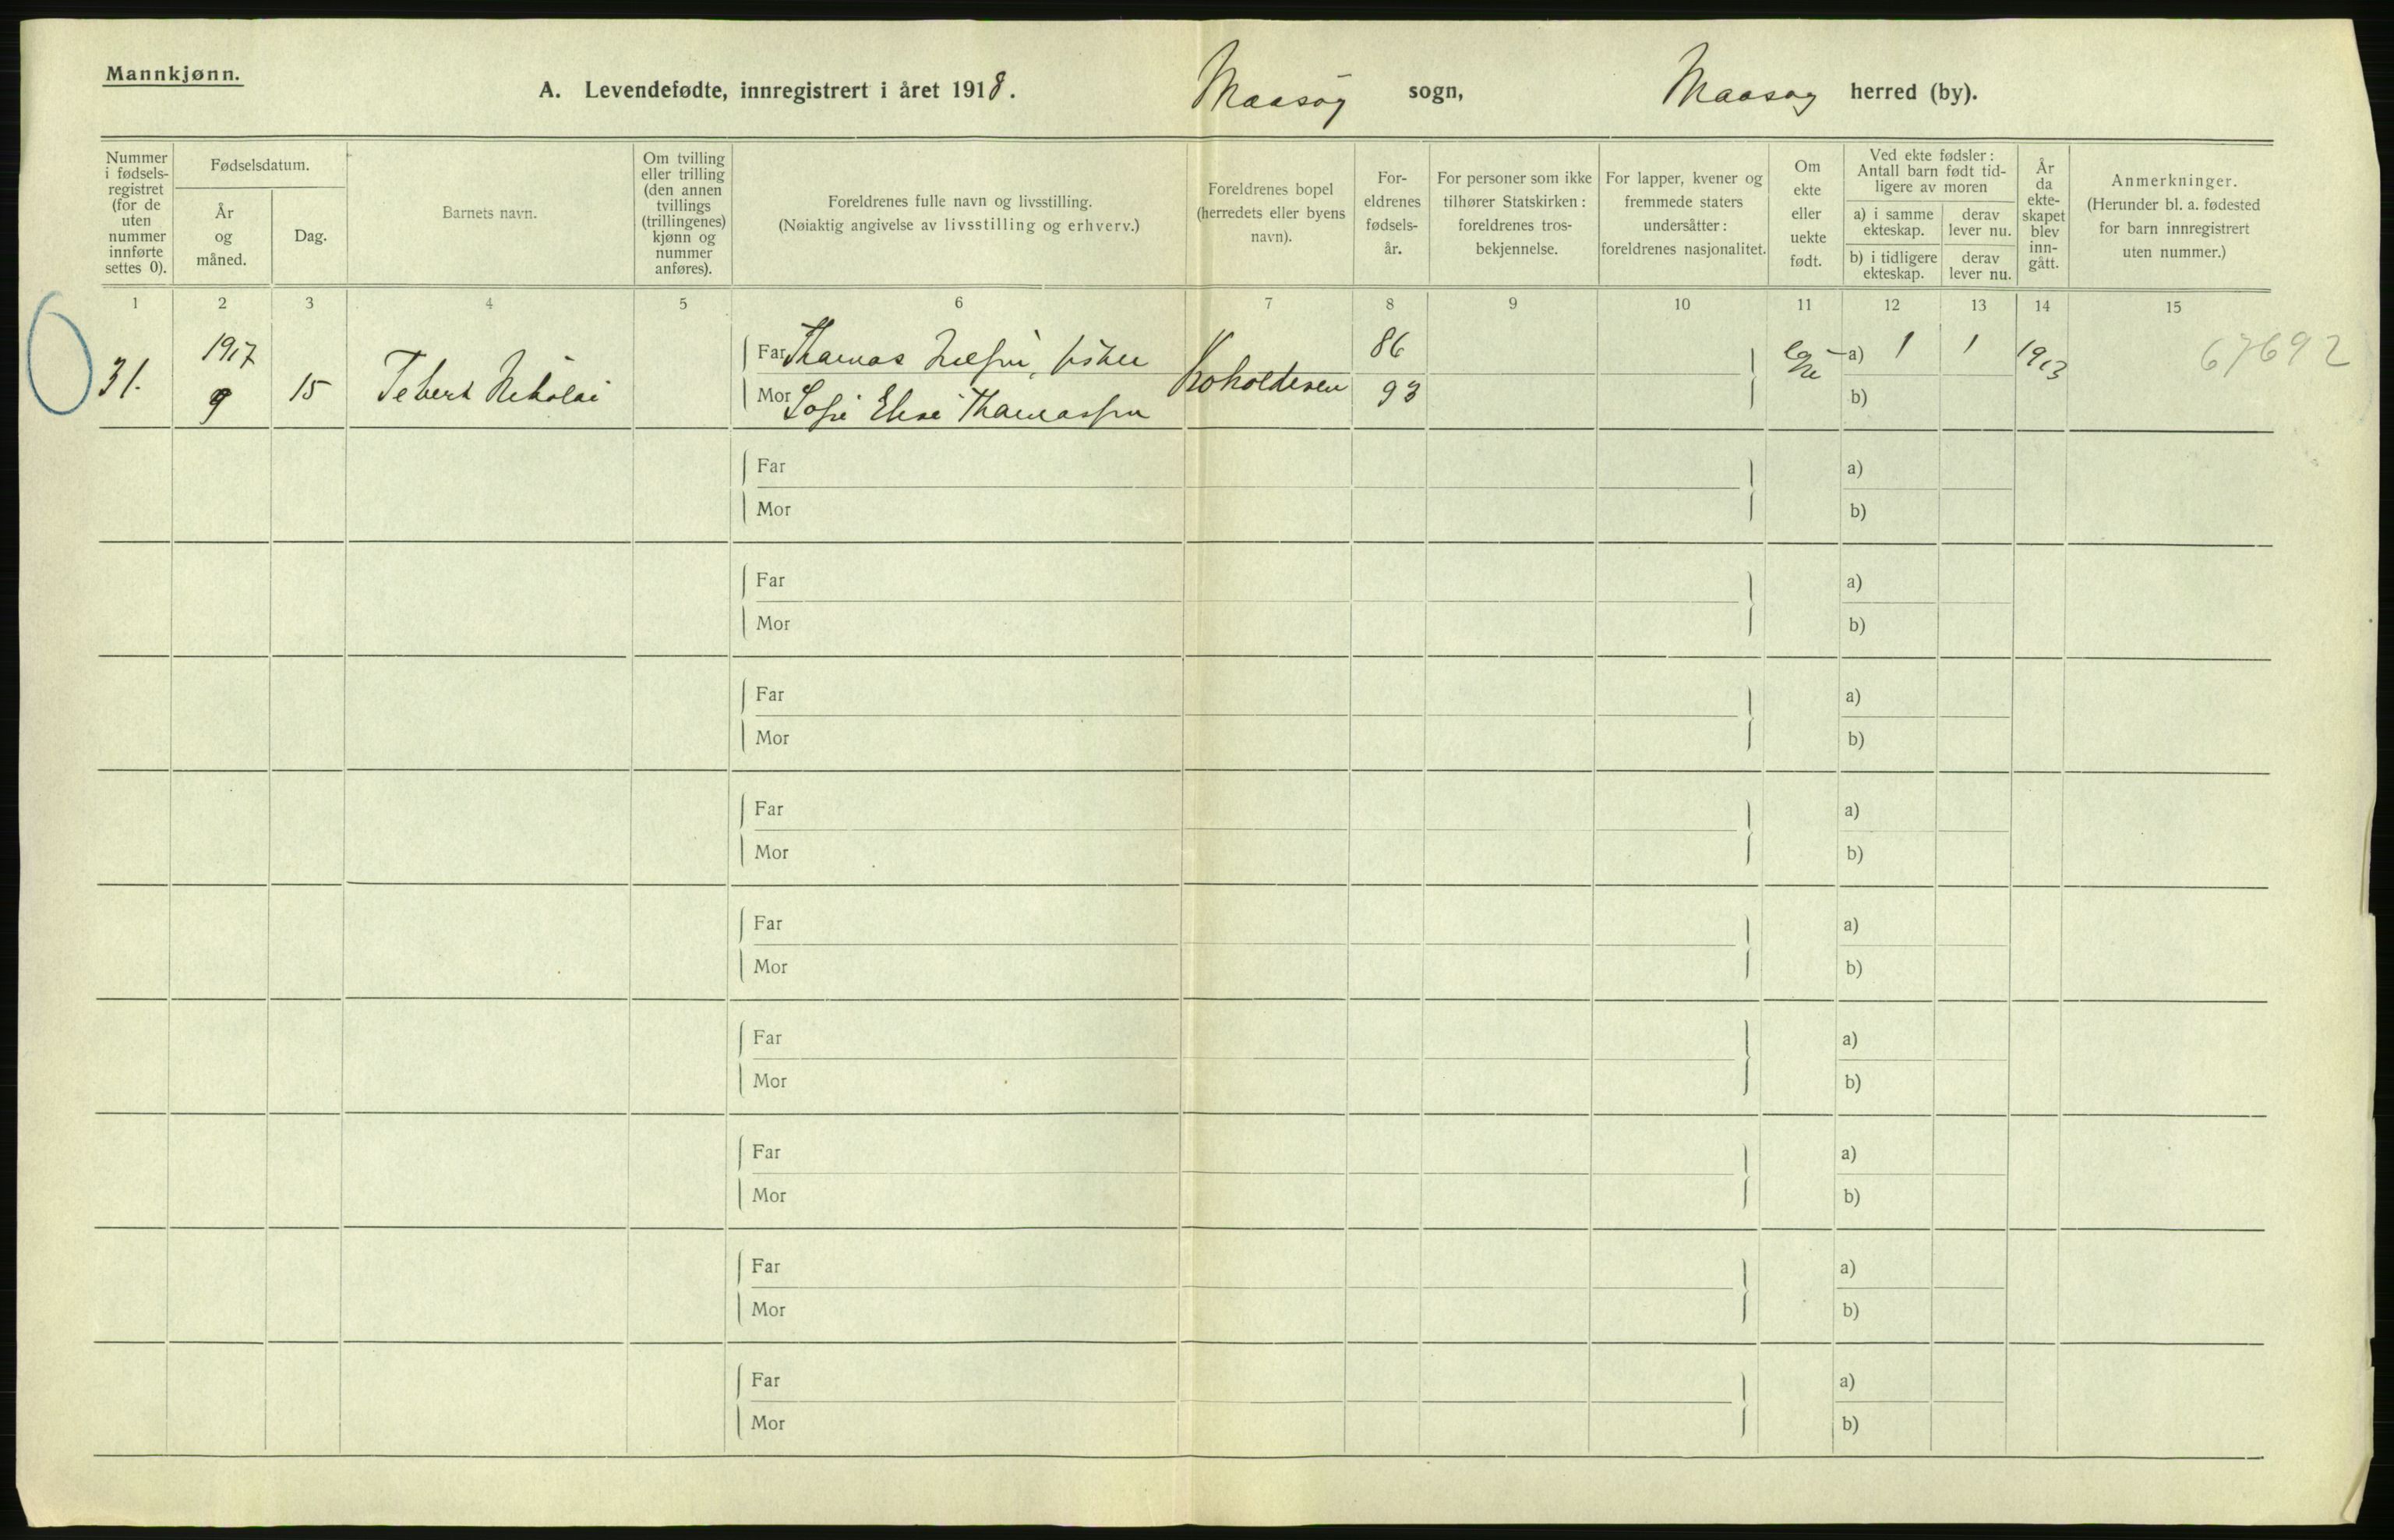 Mannkjønn.
A. Levendefødte, innregistrert i året 1918. Maasøy sogn, Maasøy herred (by).
Nummer i fødsels-registret (for de uten nummer innførte settes 0).
Fødselsdatum.
År og måned.
Dag.
Barnets navn.
Om tvilling eller trilling (den annen tvillings (trillingenes) kjønn og nummer anføres).
Foreldrenes fulle navn og livsstilling.
(Nøiaktig angivelse av livsstilling og erhverv.)
Foreldrenes bopel (herredets eller byens navn).
For-eldrenes fødsels-år.
For personer som ikke tilhører Statskirken: foreldrenes tros-bekjennelse.
For lapper, kvener og fremmede staters undersåtter: foreldrenes nasjonalitet.
Om ekte eller uekte født.
Ved ekte fødsler: Antall barn født tid-ligere av moren
a) i samme ekteskap.
derav lever nu.
b) i tidligere ekteskap.
derav lever nu.
År da ekte-skapet blev inn-gått.
Anmerkninger.
(Herunder bl. a. fødested for barn innregistrert uten nummer.)
1 2 3 4 5 6 7 8 9 10 11 12 13 14 15
31. 1917 9 15 Tebert Nikolai
Far Thomas Nilsen, fisker 86
Mor Sofie Elise Thomassen 93
a) 1 1 1913 67692
b)
Far a)
Mor b)
Far a)
Mor b)
Far a)
Mor b)
Far a)
Mor b)
Far a)
Mor b)
Far a)
Mor b)
Far a)
Mor b)
Far a)
Mor b)
Far a)
Mor b)